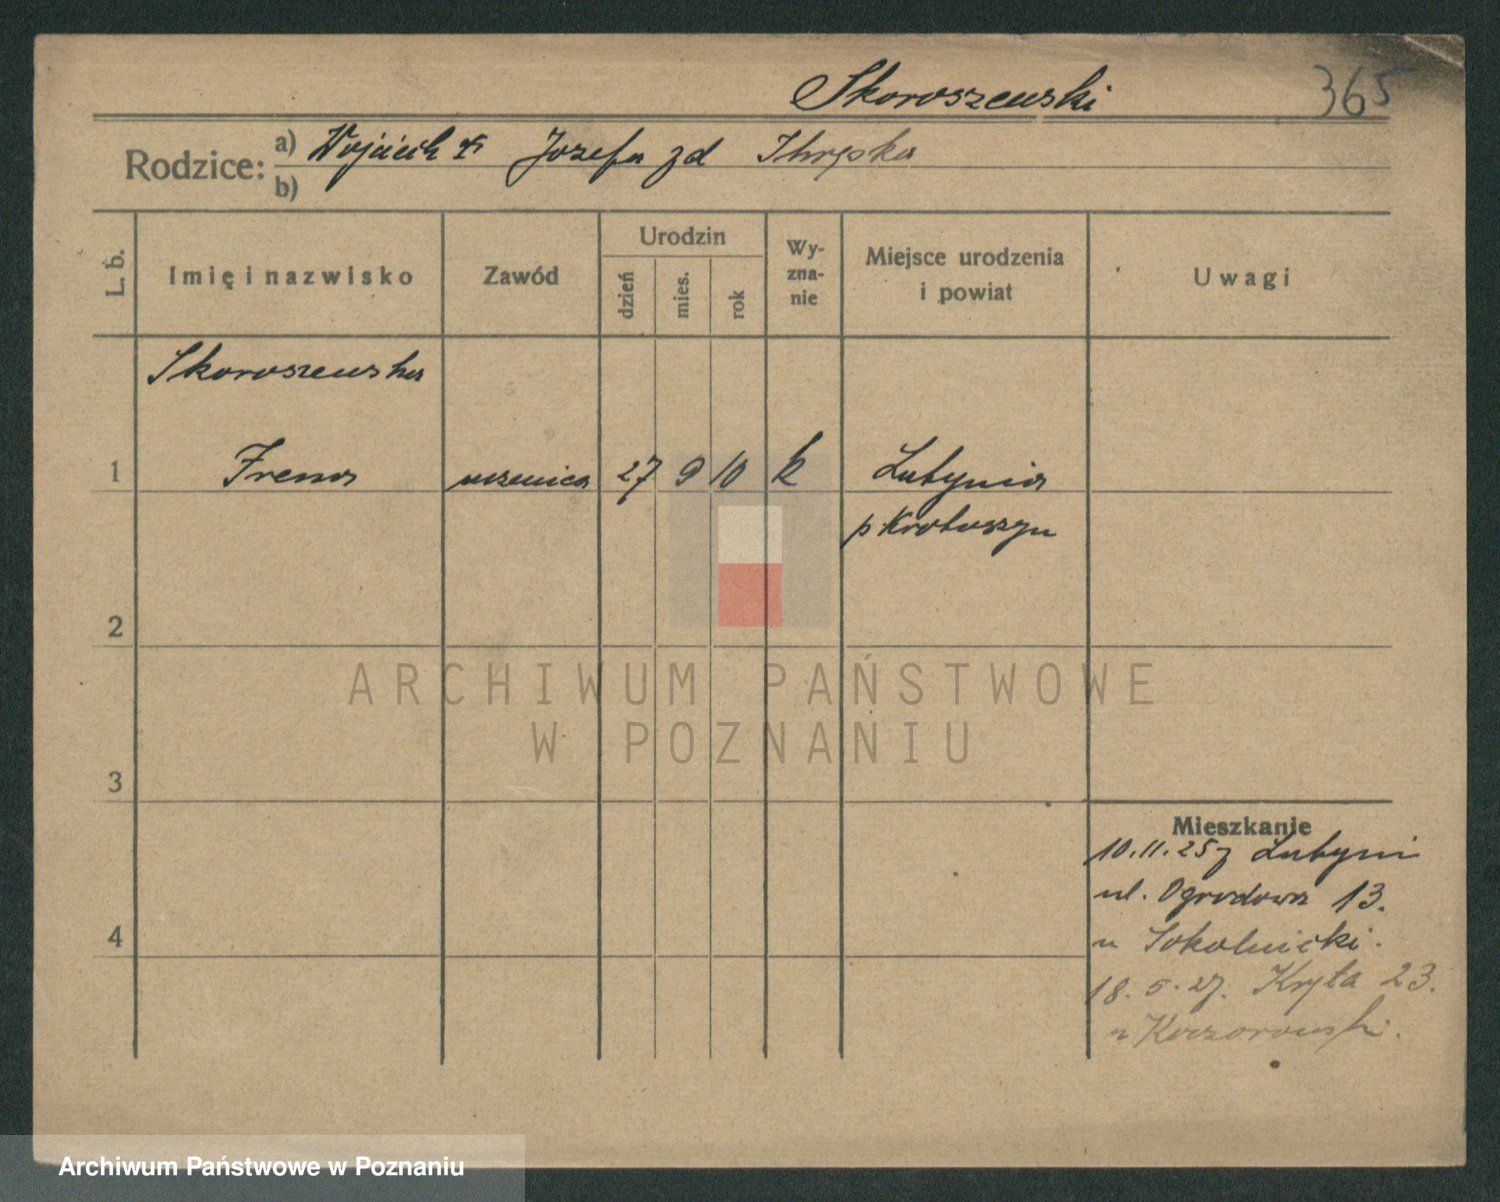 Skoroszewski 365
Rodzice: a) Wojciech i Józefa zd
b)
L. b. Imię i nazwisko Zawód Urodzin dzień mies. rok Wy-zna-nie Miejsce urodzenia i powiat Uwagi
Skoroszewska
1 Irena uczenica 27 9 10 k Lutynia
p Krotoszyn
2
ARCHIWUM PAŃSTWOWE
W POZNANIU
3
Mieszkanie
10.11.25 z Lutyni
ul. Ogrodowa 13.
4 u Sokolnicki.
18.5.27. Kryta 23.
u Koczorowski.
Archiwum Państwowe w Poznaniu